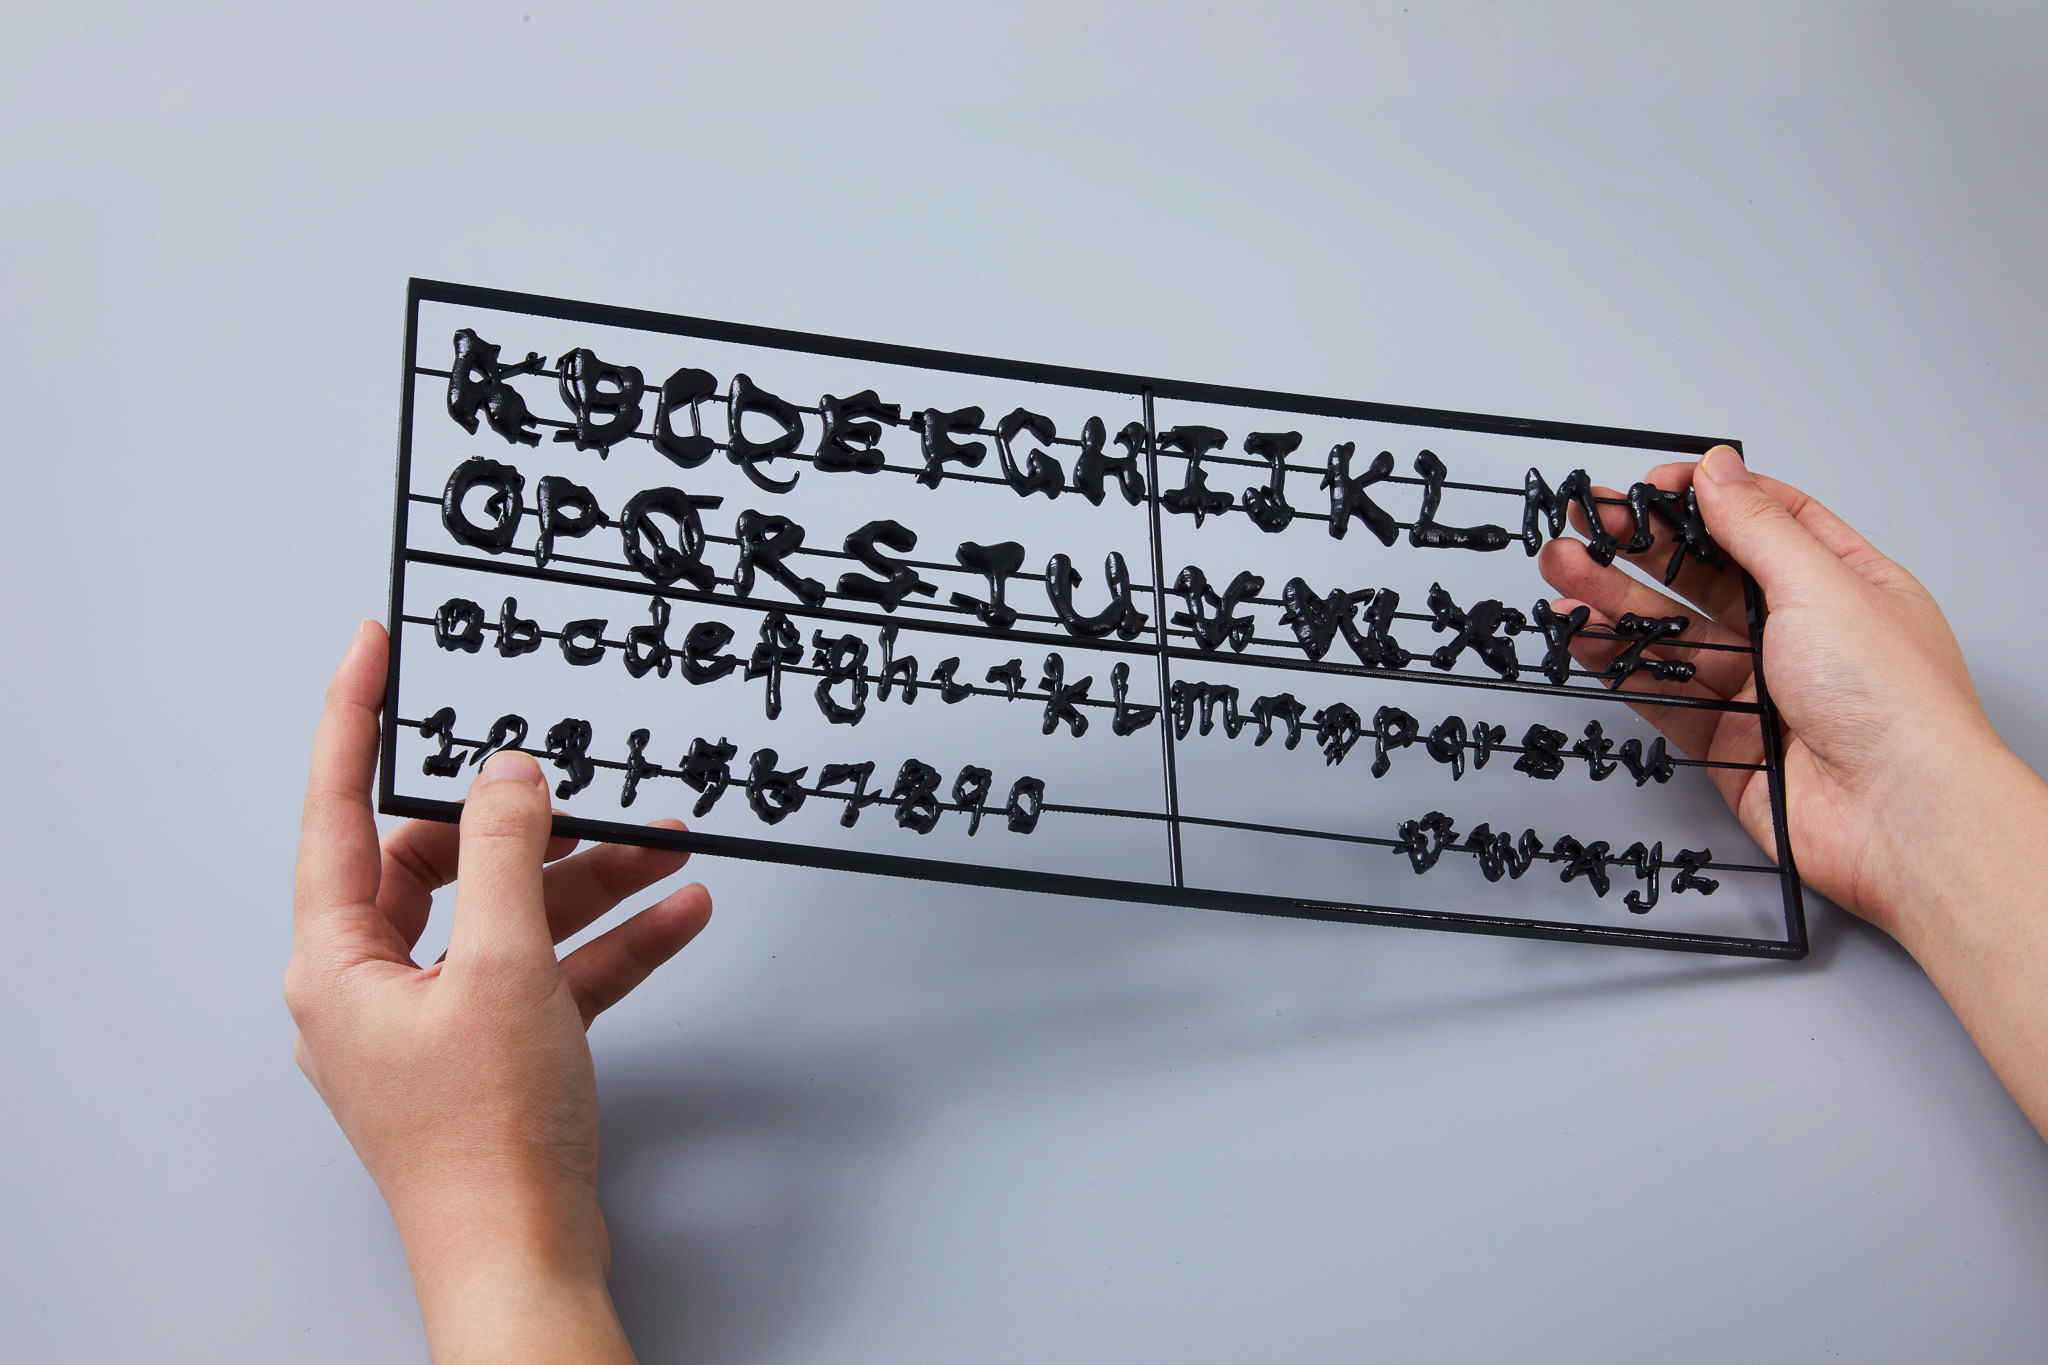 ABCDEFGHIJKLMN
OPQRSTUVWXYZ
abcdefghijkLmnopqrstu
vwxyz
1234567890